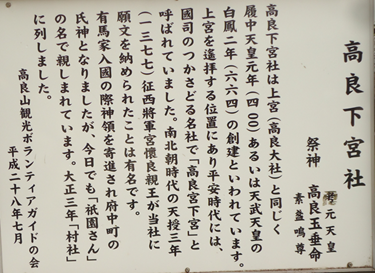 高良下宮社
祭神 高良玉垂命
孝元天皇
素盞鳴尊
高良下宮社は上宮(高良大社)と同じく
履中天皇元年(四〇〇)あるいは天武天皇の
白鳳二年(六六四)の創建といわれています。
上宮を遙拝する位置にあり平安時代には、
國司のつかさどる名社で「高良宮下宮」と
呼ばれていました。南北朝時代の天授三年
(一三七七)征西將軍宮懐良親王が当社に
願文を納められたことは有名です。
有馬家入國の際神領を寄進され府中町の
氏神となりましたが、今日でも「祇園さん」
の名で親しまれています。大正三年「村社」
に列しました。
高良山観光ボランティアガイドの会
平成二十八年七月